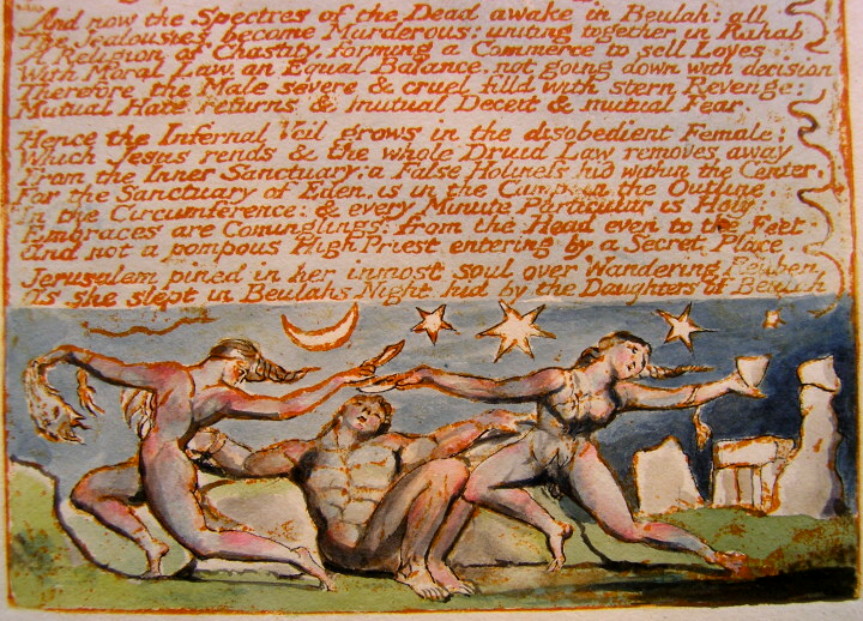 And now the Spectres of the Dead awake in Beulah: all
The Jealousies become Murderous: uniting together in Rahab
A Religion of Chastity, forming a Commerce to sell Loves
With Moral Law, an Equal Balance, not going down with decision
Therefore the Male severe & cruel filld with stern Revenge:
Mutual Hate returns & mutual Deceit & mutual Fear.
Hence the Infernal Veil grows in the disobedient Female:
Which Jesus rends & the whole Druid Law removes away
From the Inner Sanctuary: a False Holiness hid within the Center,
For the Sanctuary of Eden. is in the Camp: in the Outline,
In the Circumference: & every Minute Particular is Holy:
Embraces are Cominglings: from the Head even to the Feet;
And not a pompous High Priest entering by a Secret Place.
Jerusalem pined in her inmost soul over Wandering Reuben
As she slept in Beulahs Night hid by the Daughters of Beulah